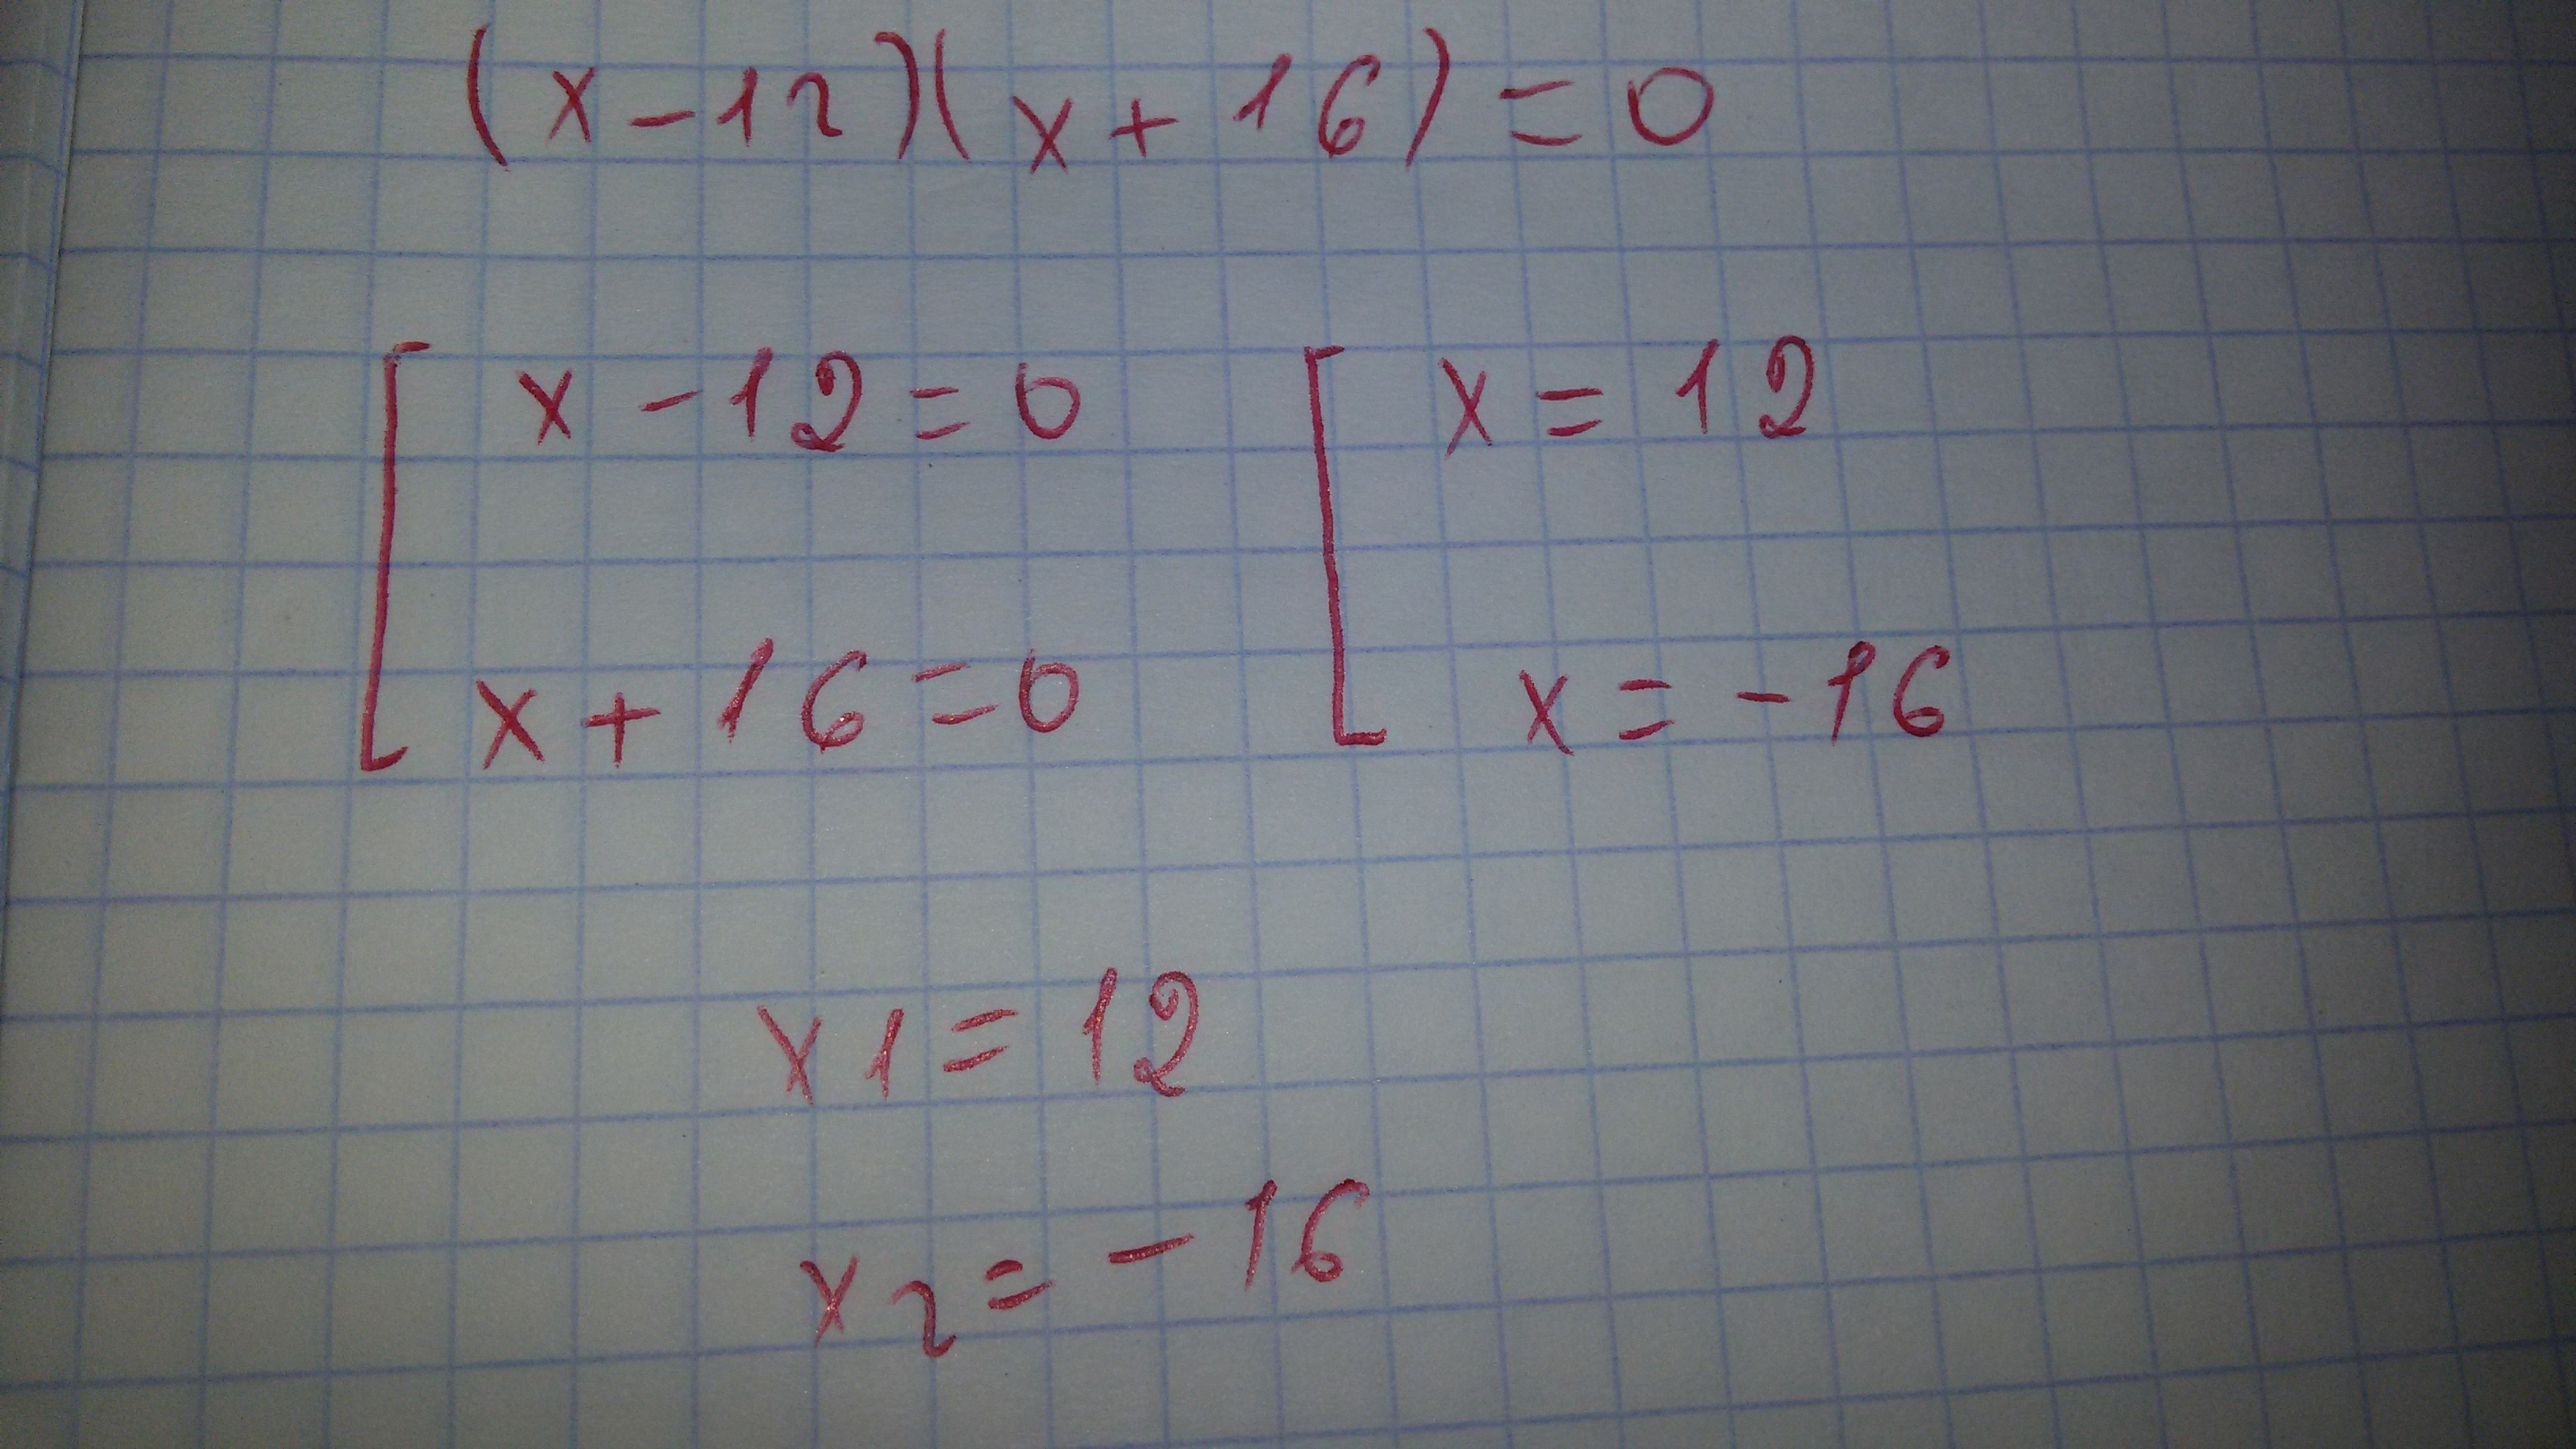 (x-12)(x+16)=0
[ x-12=0 [ x=12
x+16=0 x=-16
x1=12
x2=-16